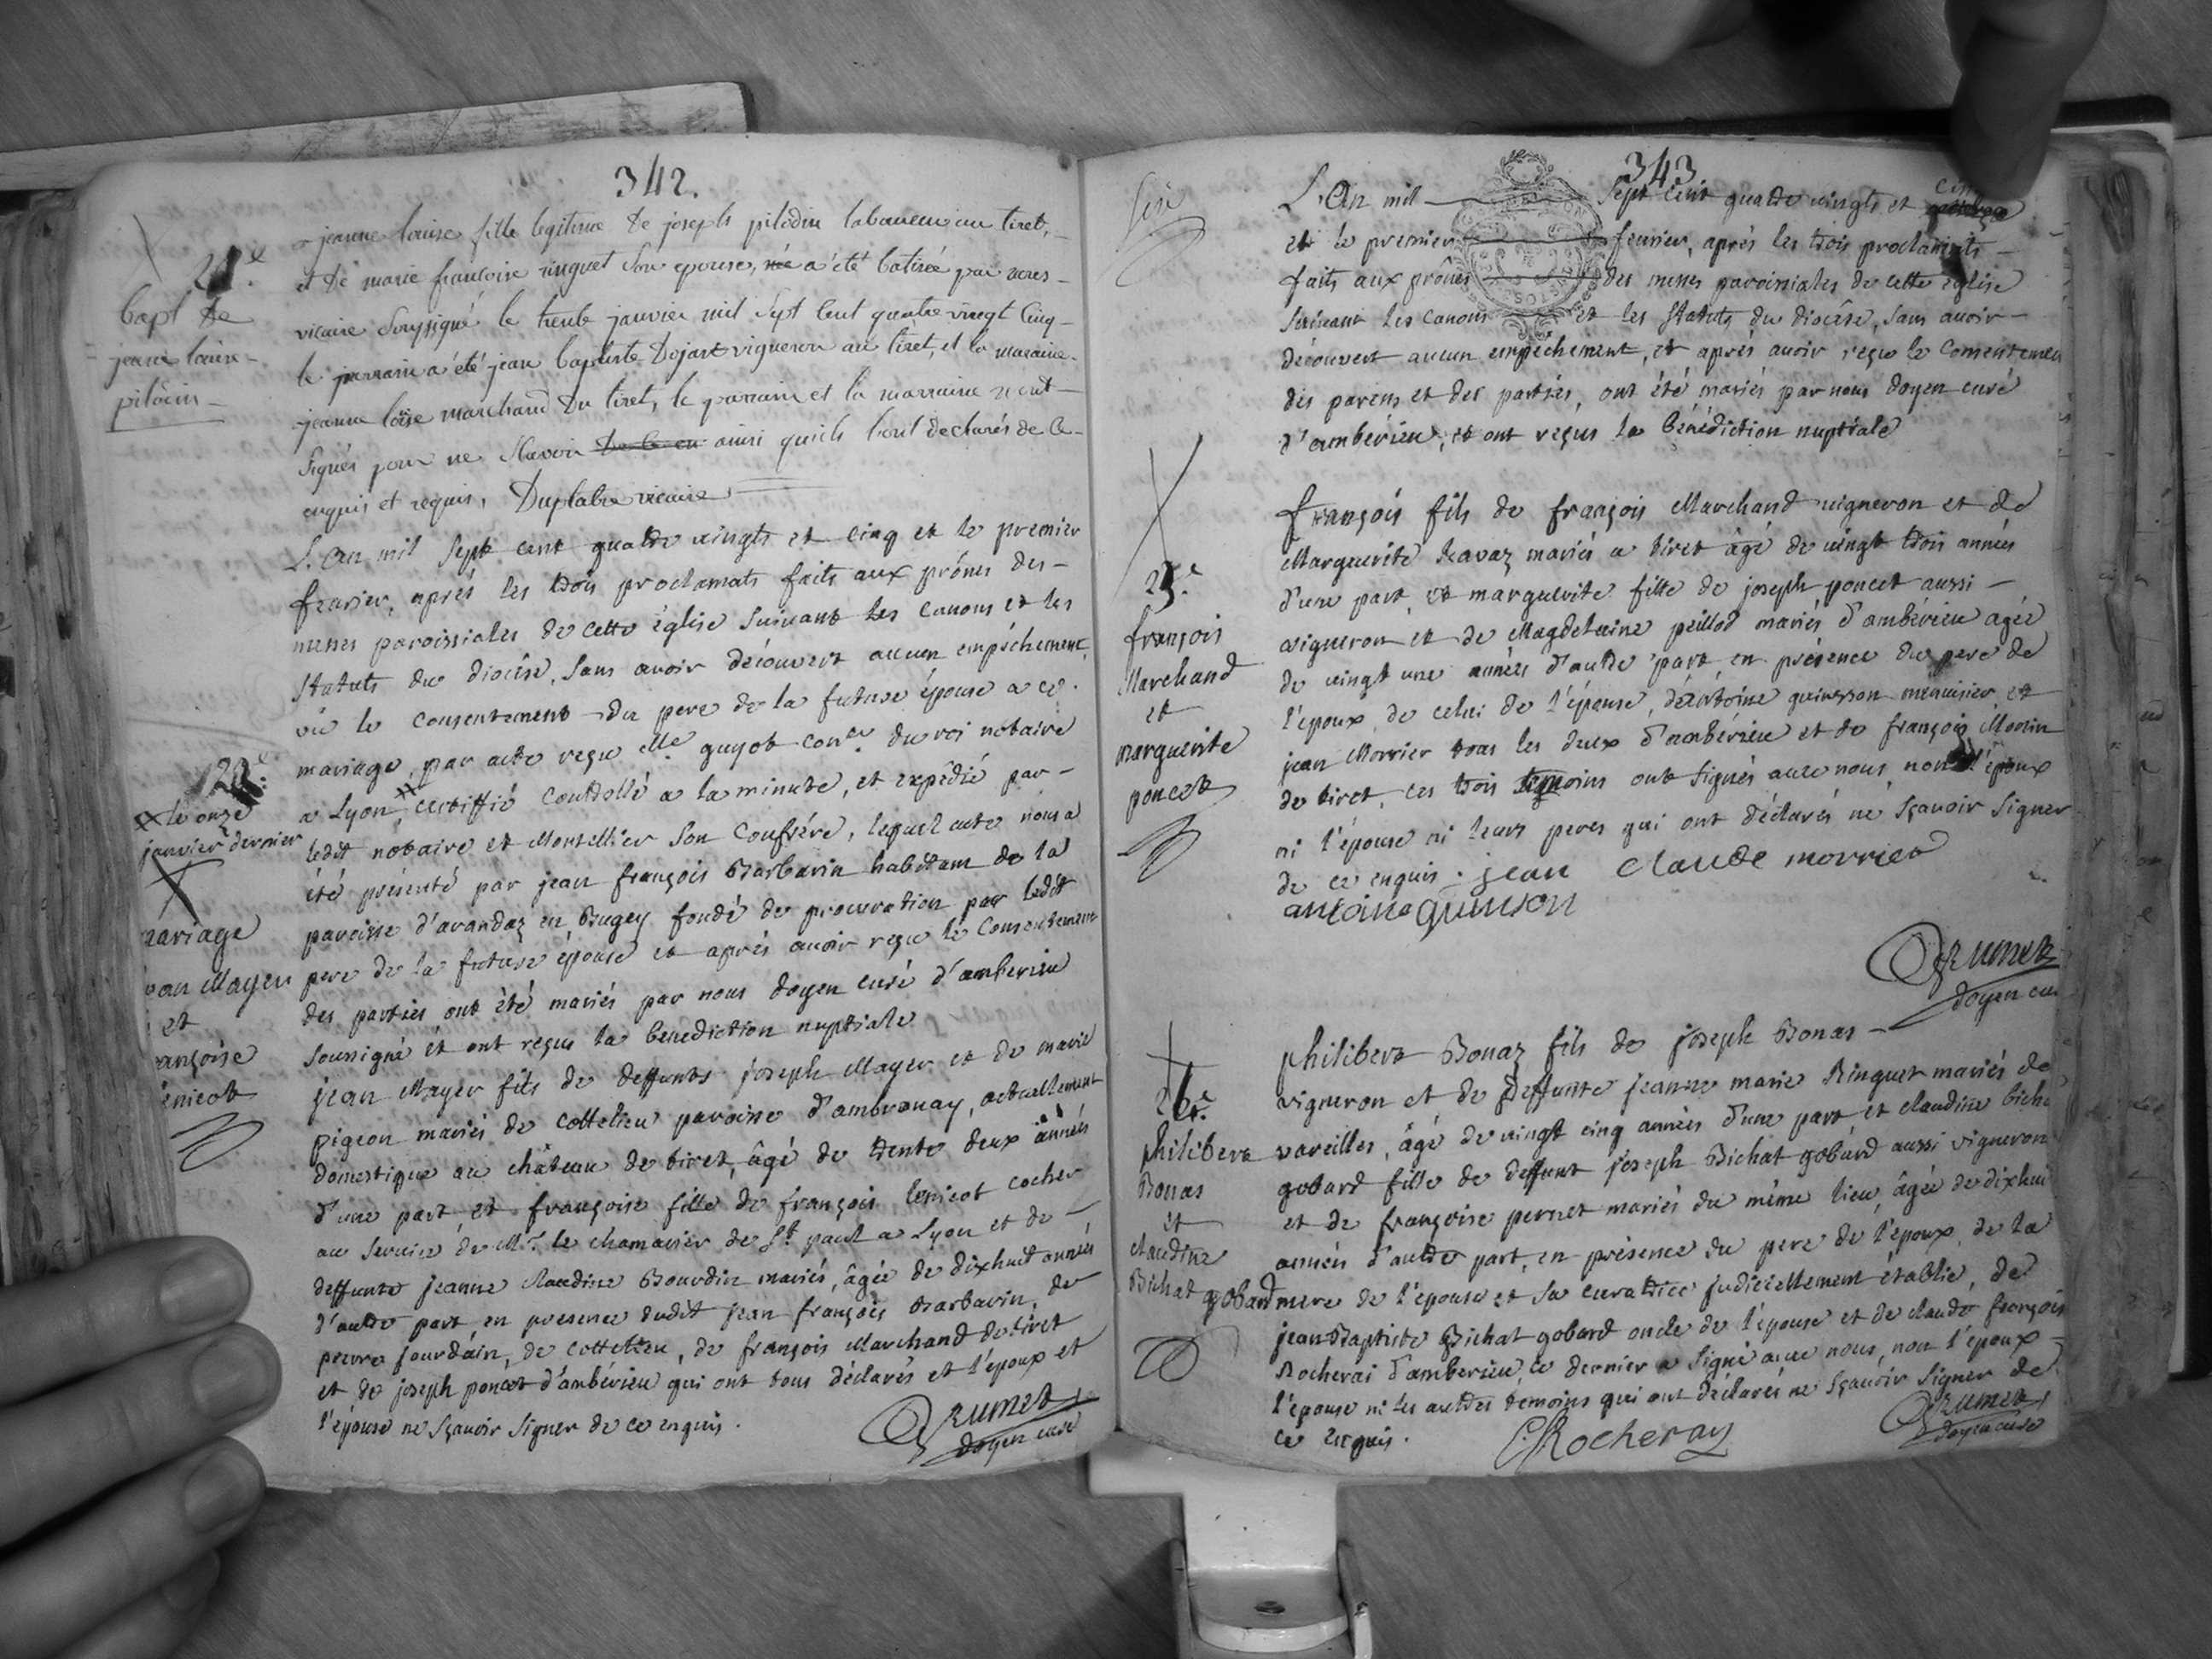 342.
jeanne louise fille legitime de joseph pilodin laboureur au tiret,
et de marie francoise ringuet son epouse, née a été batisée par nous
vicaire soussigné le trente janvier mil sept cent quatre vingt cinq
le parrain a été jean baptiste Dojat vigneron au tiret, et la maraine
jeanne loïse marchand du tiret, le parrain et la marraine n'ont
signés pour ne sçavoir ainsi quils l'ont declarés de ce
enquis et requis, Duplatre vicaire
bapt de
jeanne louise
pilodin
L'an mil sept cent quatre vingts et cinq et le premier
fevrier, après les trois proclamats faits aux prônes des
messes paroissiales de cette église suivant les canons et les
statuts du diocèse, sans avoir découvert aucun empéchement,
vû le consentement du pere de la future épouse a ce
mariage, par acte reçu Me guyot conler du roi notaire
a Lyon, certiffié controllé a la minute, et expédié par
ledit notaire et Montellier son confrére, lequel acte nous a
été présenté par jean françois Barbarin habitant de la
paroisse d'arandaz en Bugey fondé de procuration par ledit
pere de la future épouse et après avoir reçu le consentement
des parties ont été mariés par nous doyen curé d'amberieu
soussigné et ont reçus la benediction nuptiale
jean Mayer fils de deffunts joseph Mayer et de marie
pigeon mariés de cottelieu paroisse d'ambronay, actuellement
domestique au château de tiret, âgé de trente deux années
d'une part, et françoise fille de françois lenicot cocher
au service de Mr. le chamarier de St. paul a Lyon et de
deffunte jeanne claudine Bourdin mariés, âgée de dixhuit années
d'autre part en presence dudit jean françois Barbarin, de
pierre jourdain, de cottelieu, de françois Marchand de tiret
et de joseph poncet d'ambérieu qui ont tous déclarés et l'époux et
l'épouse ne sçavoir signer de ce enquis.
Grumet
doyen curé
le onze
janvier dernier
mariage
jean Mayer
et
françoise
lenicot
343
L'an mil sept cent quatre vingts et cinq
et le premier fevrier, après les trois proclamats
faits aux prônes des messes paroissiales de cette église
suivant les canons et les statuts du diocèse, sans avoir
découvert aucun empéchement, et après avoir reçu le consentement
des parens et des parties, ont été mariés par nous doyen curé
d'ambérieu, et ont reçus la bénédiction nuptiale
françois fils de françois Marchand vigneron et de
Marguerite Ravaz mariés a tiret âgé de vingt trois années
d'une part, et marguerite fille de joseph poncet aussi
vigneron et de Magdelaine peillod mariés d'ambérieu agée
de vingt une années d'autre part en présence du pere de
l'époux, de celui de l'épouse, d'antoine quinson menuisier et
jean Morrier tous les deux d'ambérieu et de françois Morin
de tiret, ces trois témoins ont signés avec nous non l'époux
ni l'épouse ni leurs peres qui ont déclarés ne sçavoir signer
de ce enquis. jean Claude morrier
antoine quinson
Grumet
doyen curé
25e
françois
Marchand
et
marguerite
poncet
philibert Bonaz fils de joseph Bonas
vigneron et de deffunte jeanne marie Ringuet mariés de
vareilles, âgé de vingt cinq années d'une part et claudine bichat
gobard fille de deffunt joseph Bichat gobard aussi vigneron
et de françoise pernet mariés du même lieu, âgée de dixhuit
années d'autre part, en présence du pere de l'époux, de la
mere de l'épouse et sa curatrice judiciellement établie, de
jean Baptiste Bichat gobard oncle de l'épouse et de claude françois
Rocherai d'amberieu, ce dernier a signé avec nous, non l'époux
l'épouse ni les autres temoins qui ont déclarés ne sçavoir signer de
ce enquis.
Rocheray
Grumet
doyen curé
philibert
Bonas
et
claudine
Bichat gobard